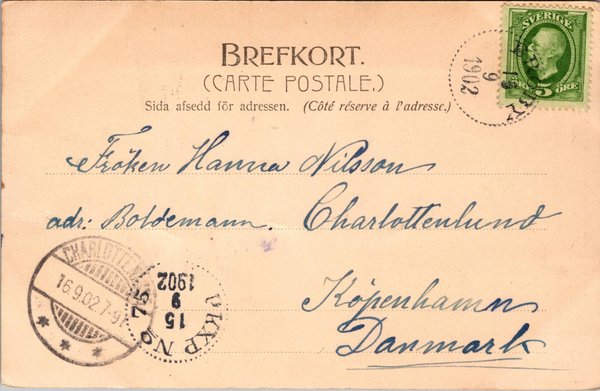 BREFKORT.
(CARTE POSTALE.)
Sida afsedd för adressen. (Côté réservé à l'adresse.)
SVERIGE
5 ÖRE
9
1902
Fröken Hanna Nilsson
adr: Boldemann. Charlottenlund
Köpenhamn
Danmark
16.9.02 7-9F
PKXP No 75
15
9
1902